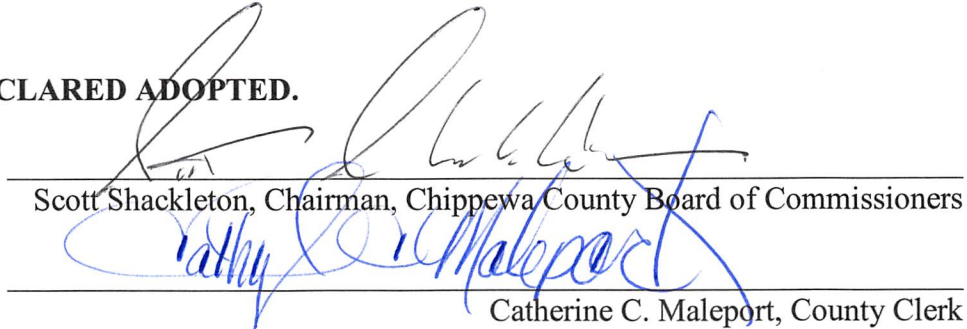 CLARED ADOPTED.
Scott Shackleton, Chairman, Chippewa County Board of Commissioners
Cathy C. Maleport
Catherine C. Maleport, County Clerk